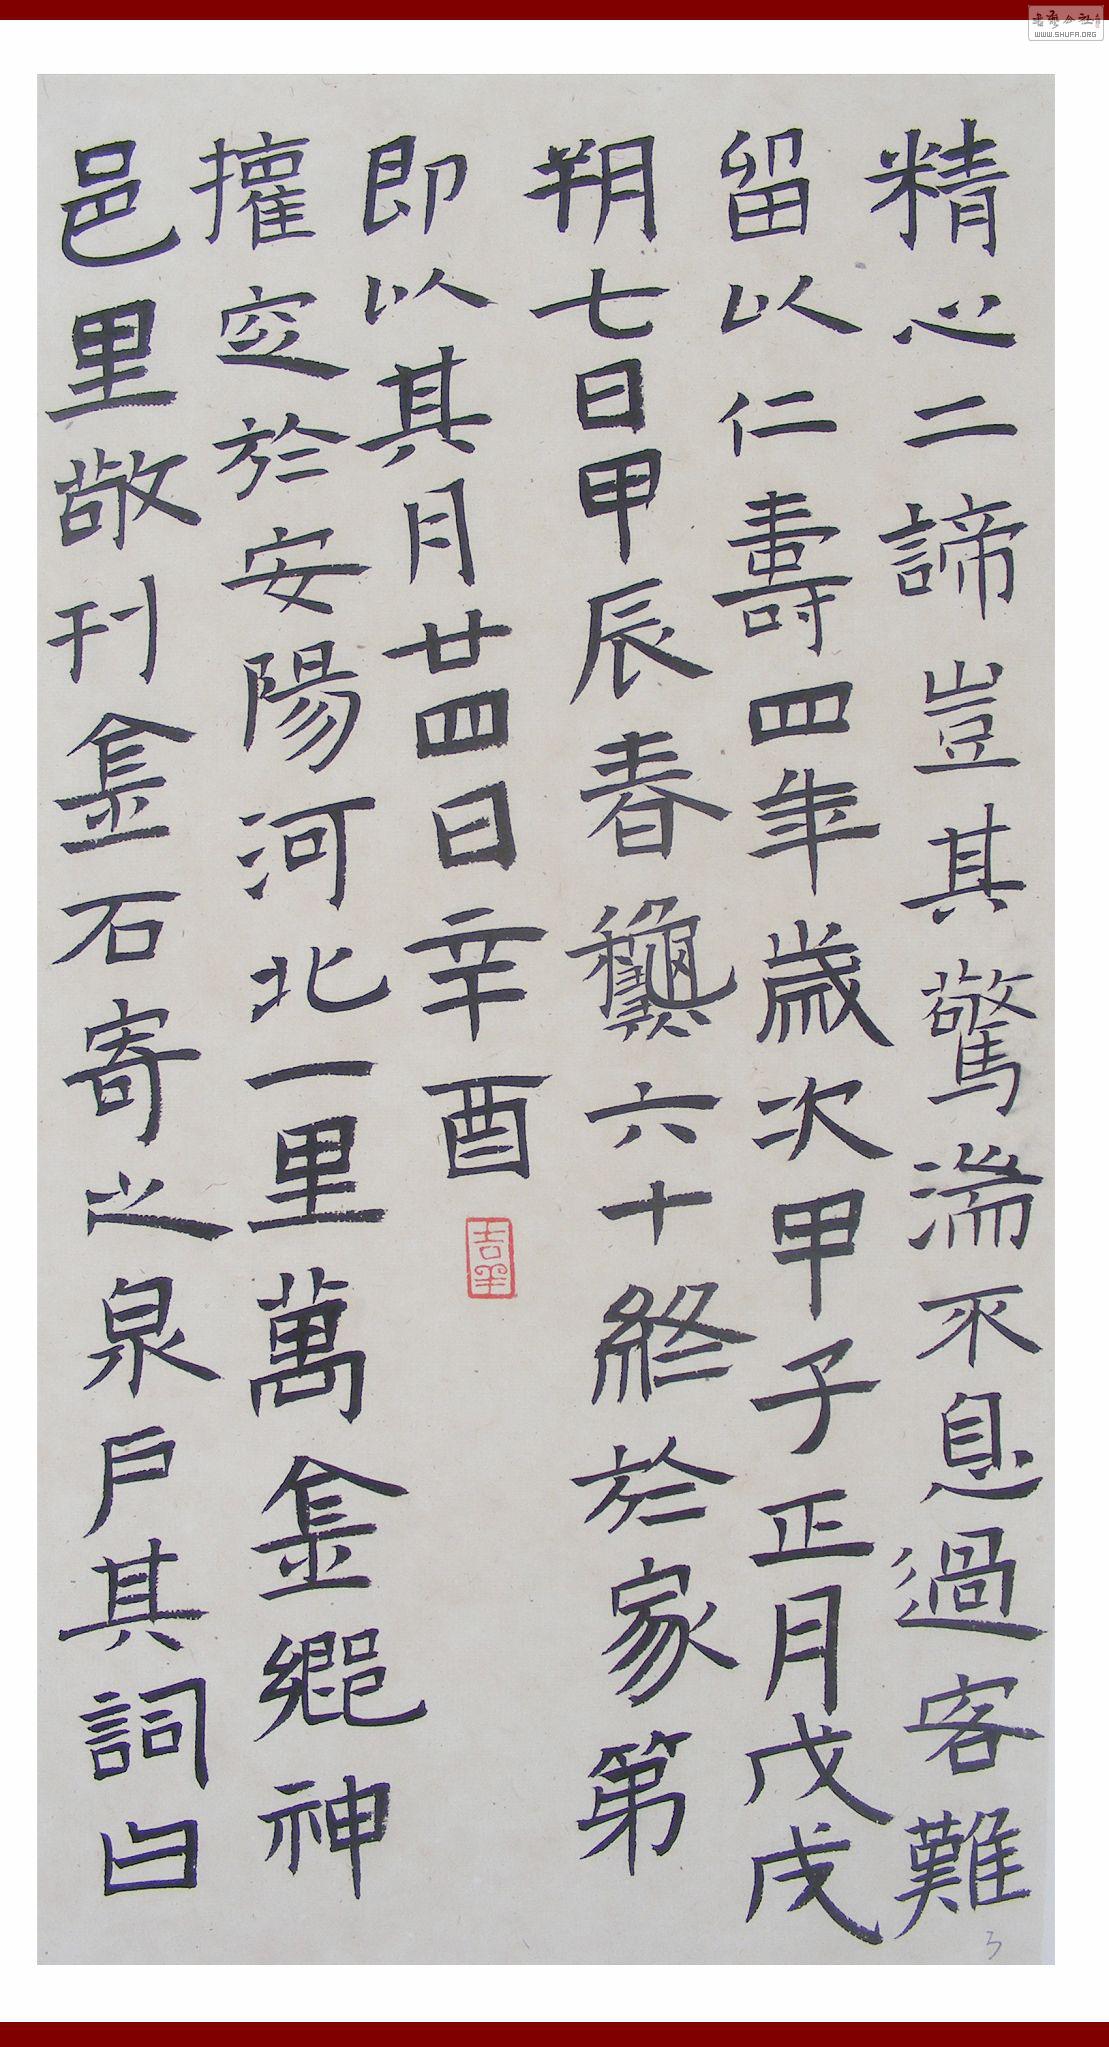 精心二諦豈其驚湍不息過客難
留以仁壽四年歲次甲子正月戊戌
朔七日甲辰春龝六十終於家第
即以其月廿四日辛酉
權窆於安陽河北一里萬金鄉神
邑里敬刊金石寄之泉戶其詞曰
WWW.SHUFA.ORG